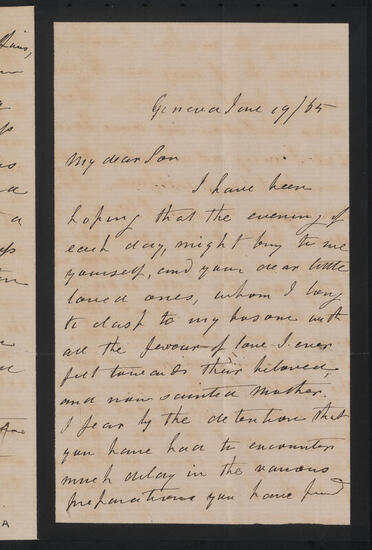 Geneva June 19/65
My dear Son
I have been
hoping that the evening of
each day, might bring to me
yourself, and your dear little
loved ones, whom I long
to clasp to my bosom with
all the fervour of love I ever
felt towards their beloved,
and now sainted Mother.
I fear by the detention that
you have had to encounter
much delay in the various
preparations you have had